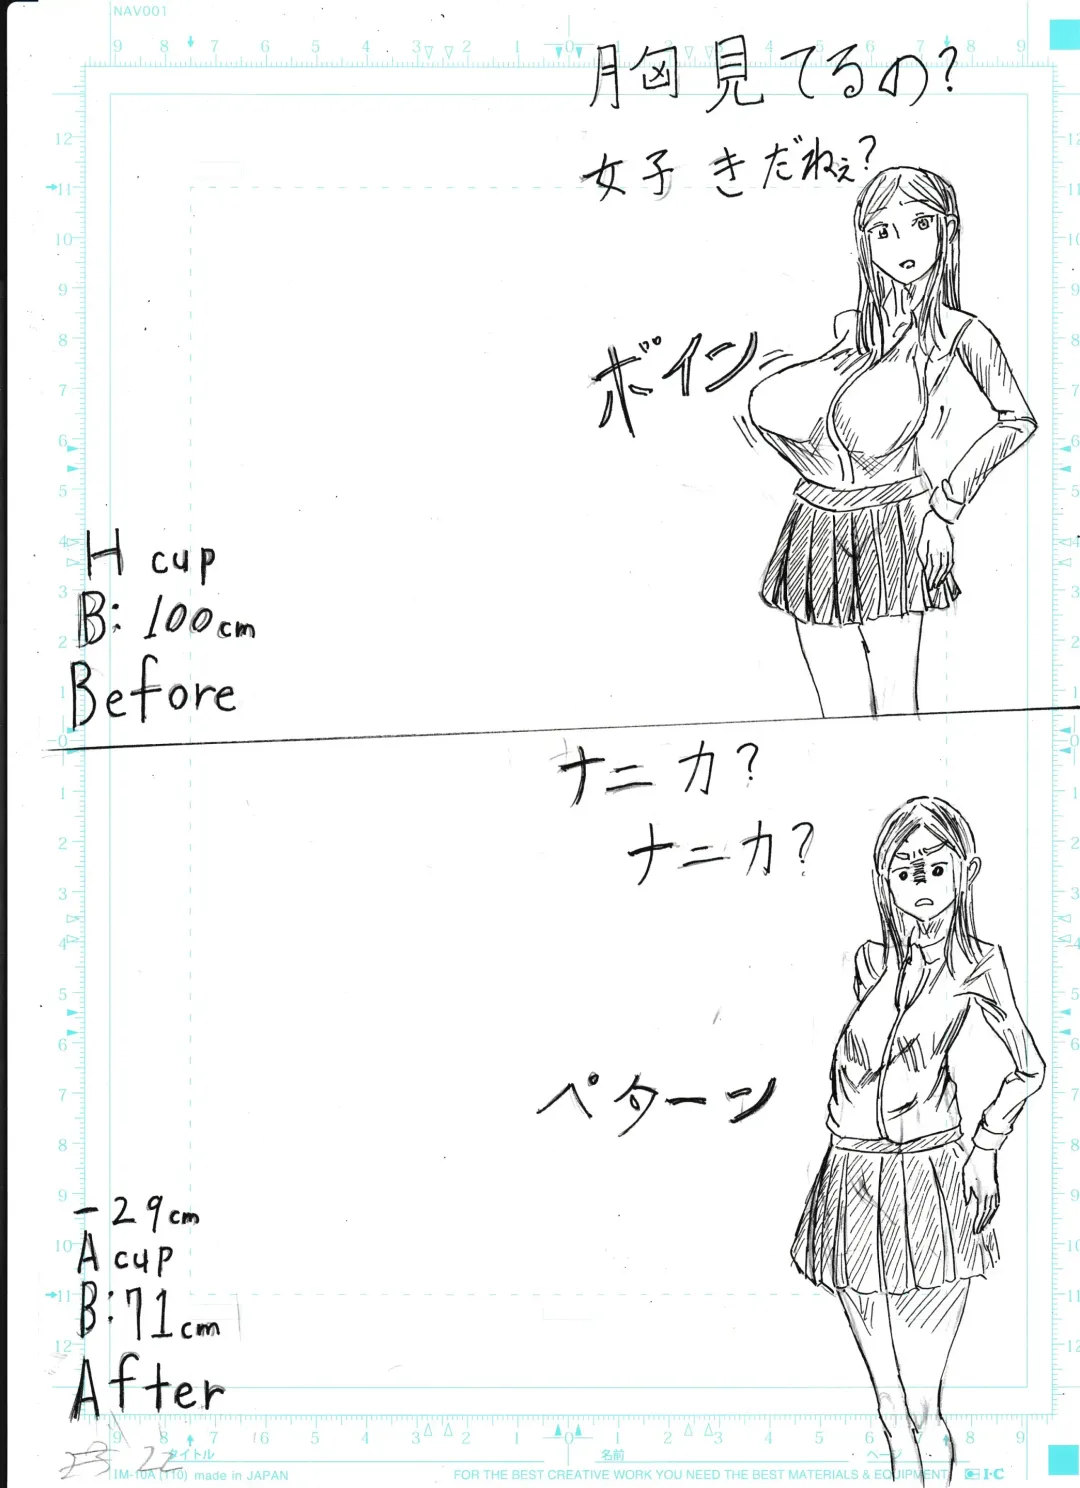 NAV001
胸見てるの?
女子きだねぇ?
ボイン
H cup
B: 100cm
Before
ナニカ?
ナニカ?
ペターン
-29cm
A cup
B: 71cm
After
タイトル
名前
ページ
IM-10A (110) made in JAPAN
FOR THE BEST CREATIVE WORK YOU NEED THE BEST MATERIALS & EQUIPMENT
I·C